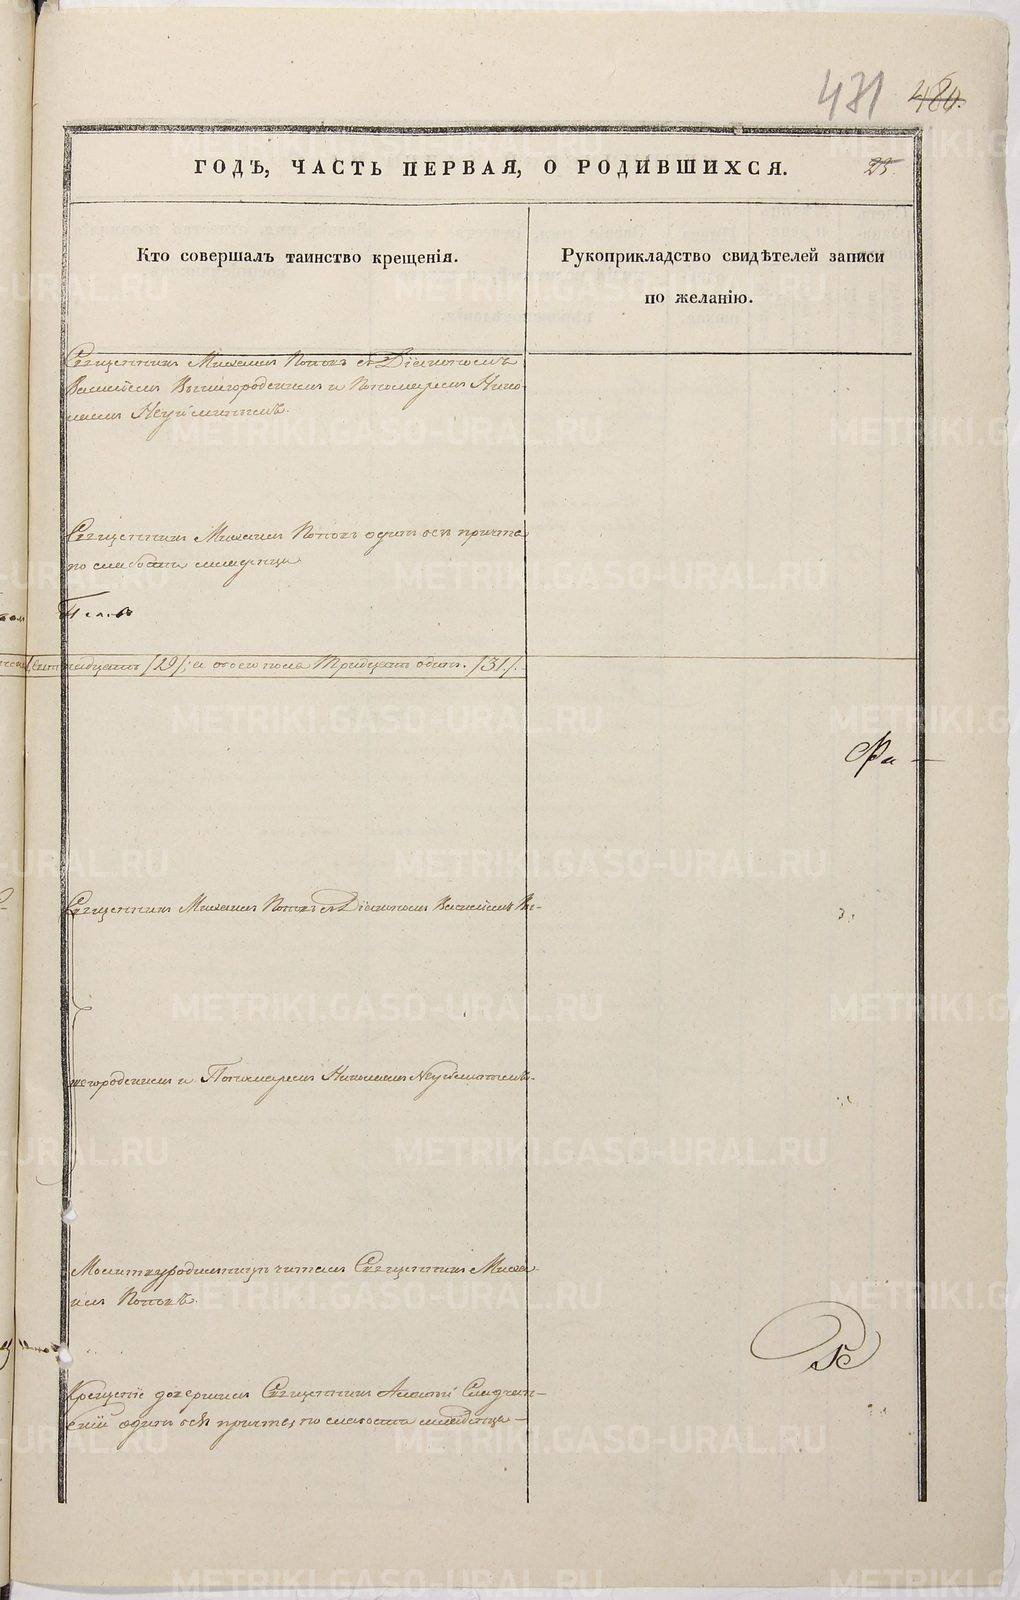 471 480.
ГОДЪ, ЧАСТЬ ПЕРВАЯ, О РОДИВШИХСЯ. 25.
Кто совершалъ таинство крещенія.
Рукоприкладство свидѣтелей записи
по желанію.
Священникъ Михаилъ Поповъ съ Діакономъ
Василіемъ Вышегородскимъ и Пономаремъ Нико-
лаемъ Неуйминымъ.
Священникъ Михаилъ Поповъ одинъ безъ причта
по слабости младенца
дцать /29/, а обоего пола Тридцать одинъ. /31/.
Священникъ Михаилъ Поповъ съ Діакономъ Василіемъ Вы-
шегородскимъ и Пономаремъ Николаемъ Неуйминымъ.
Молитву родильницѣ читалъ Священникъ Миха-
илъ Поповъ.
Крещеніе довершилъ Священникъ
одинъ безъ причта, по слабости младенца
METRIKI.GASO-URAL.RU